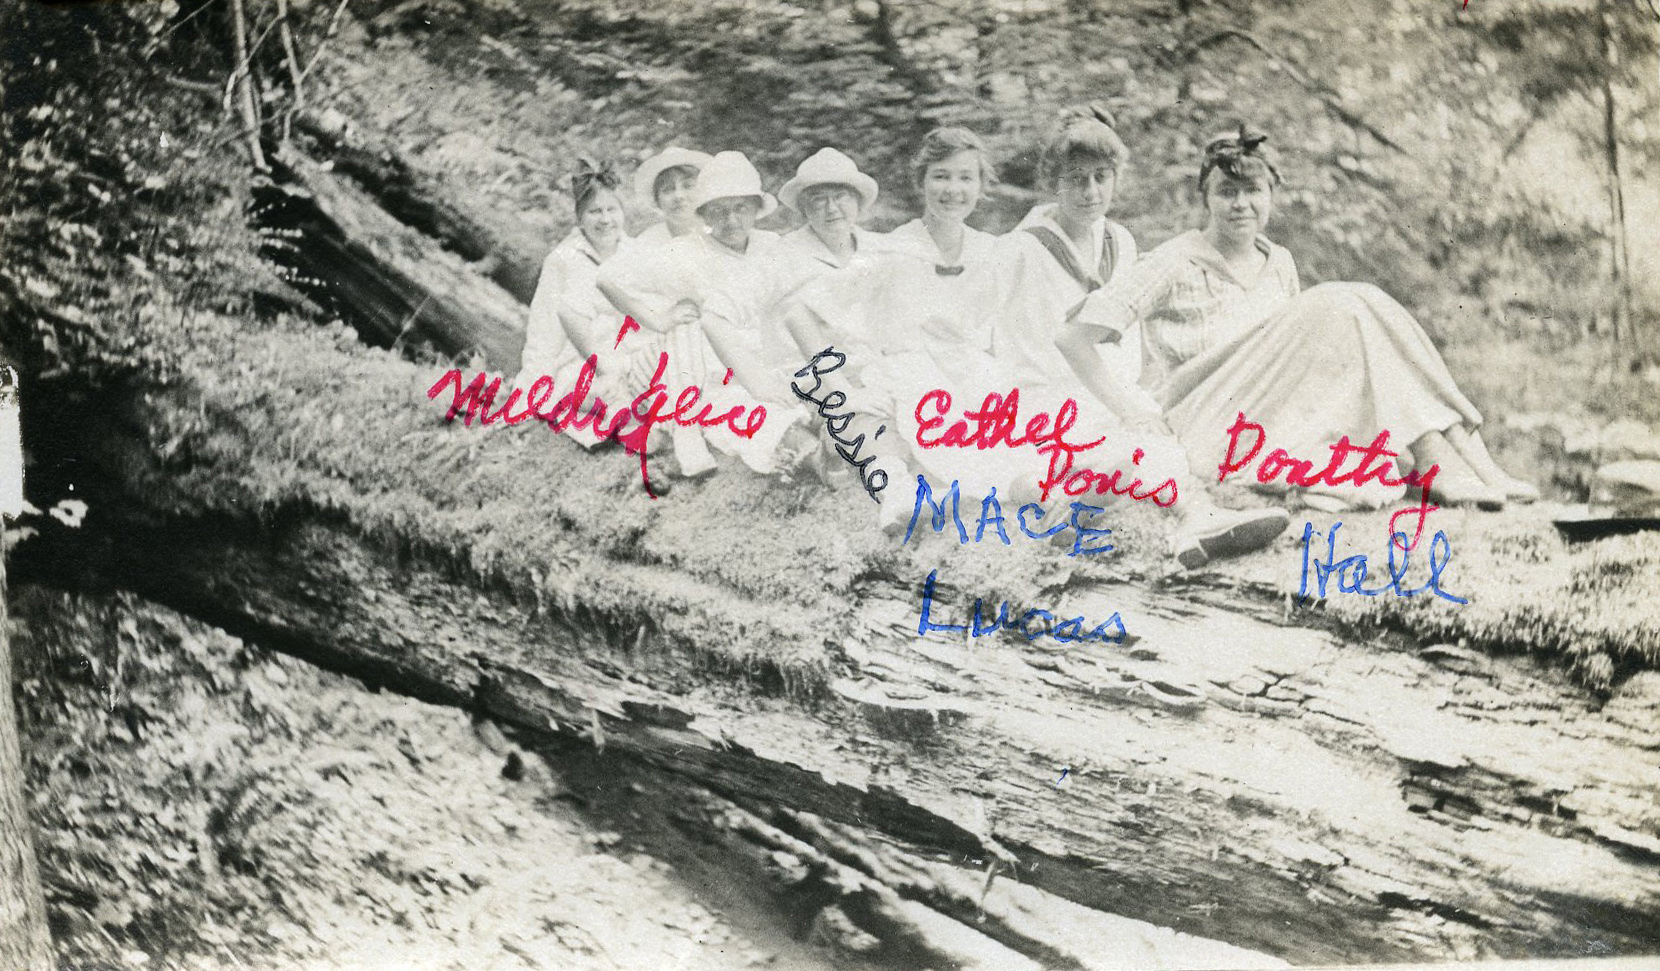 Mildred Alice Bessie Eathel Doris Dorothy
MACE Hall
Lucas